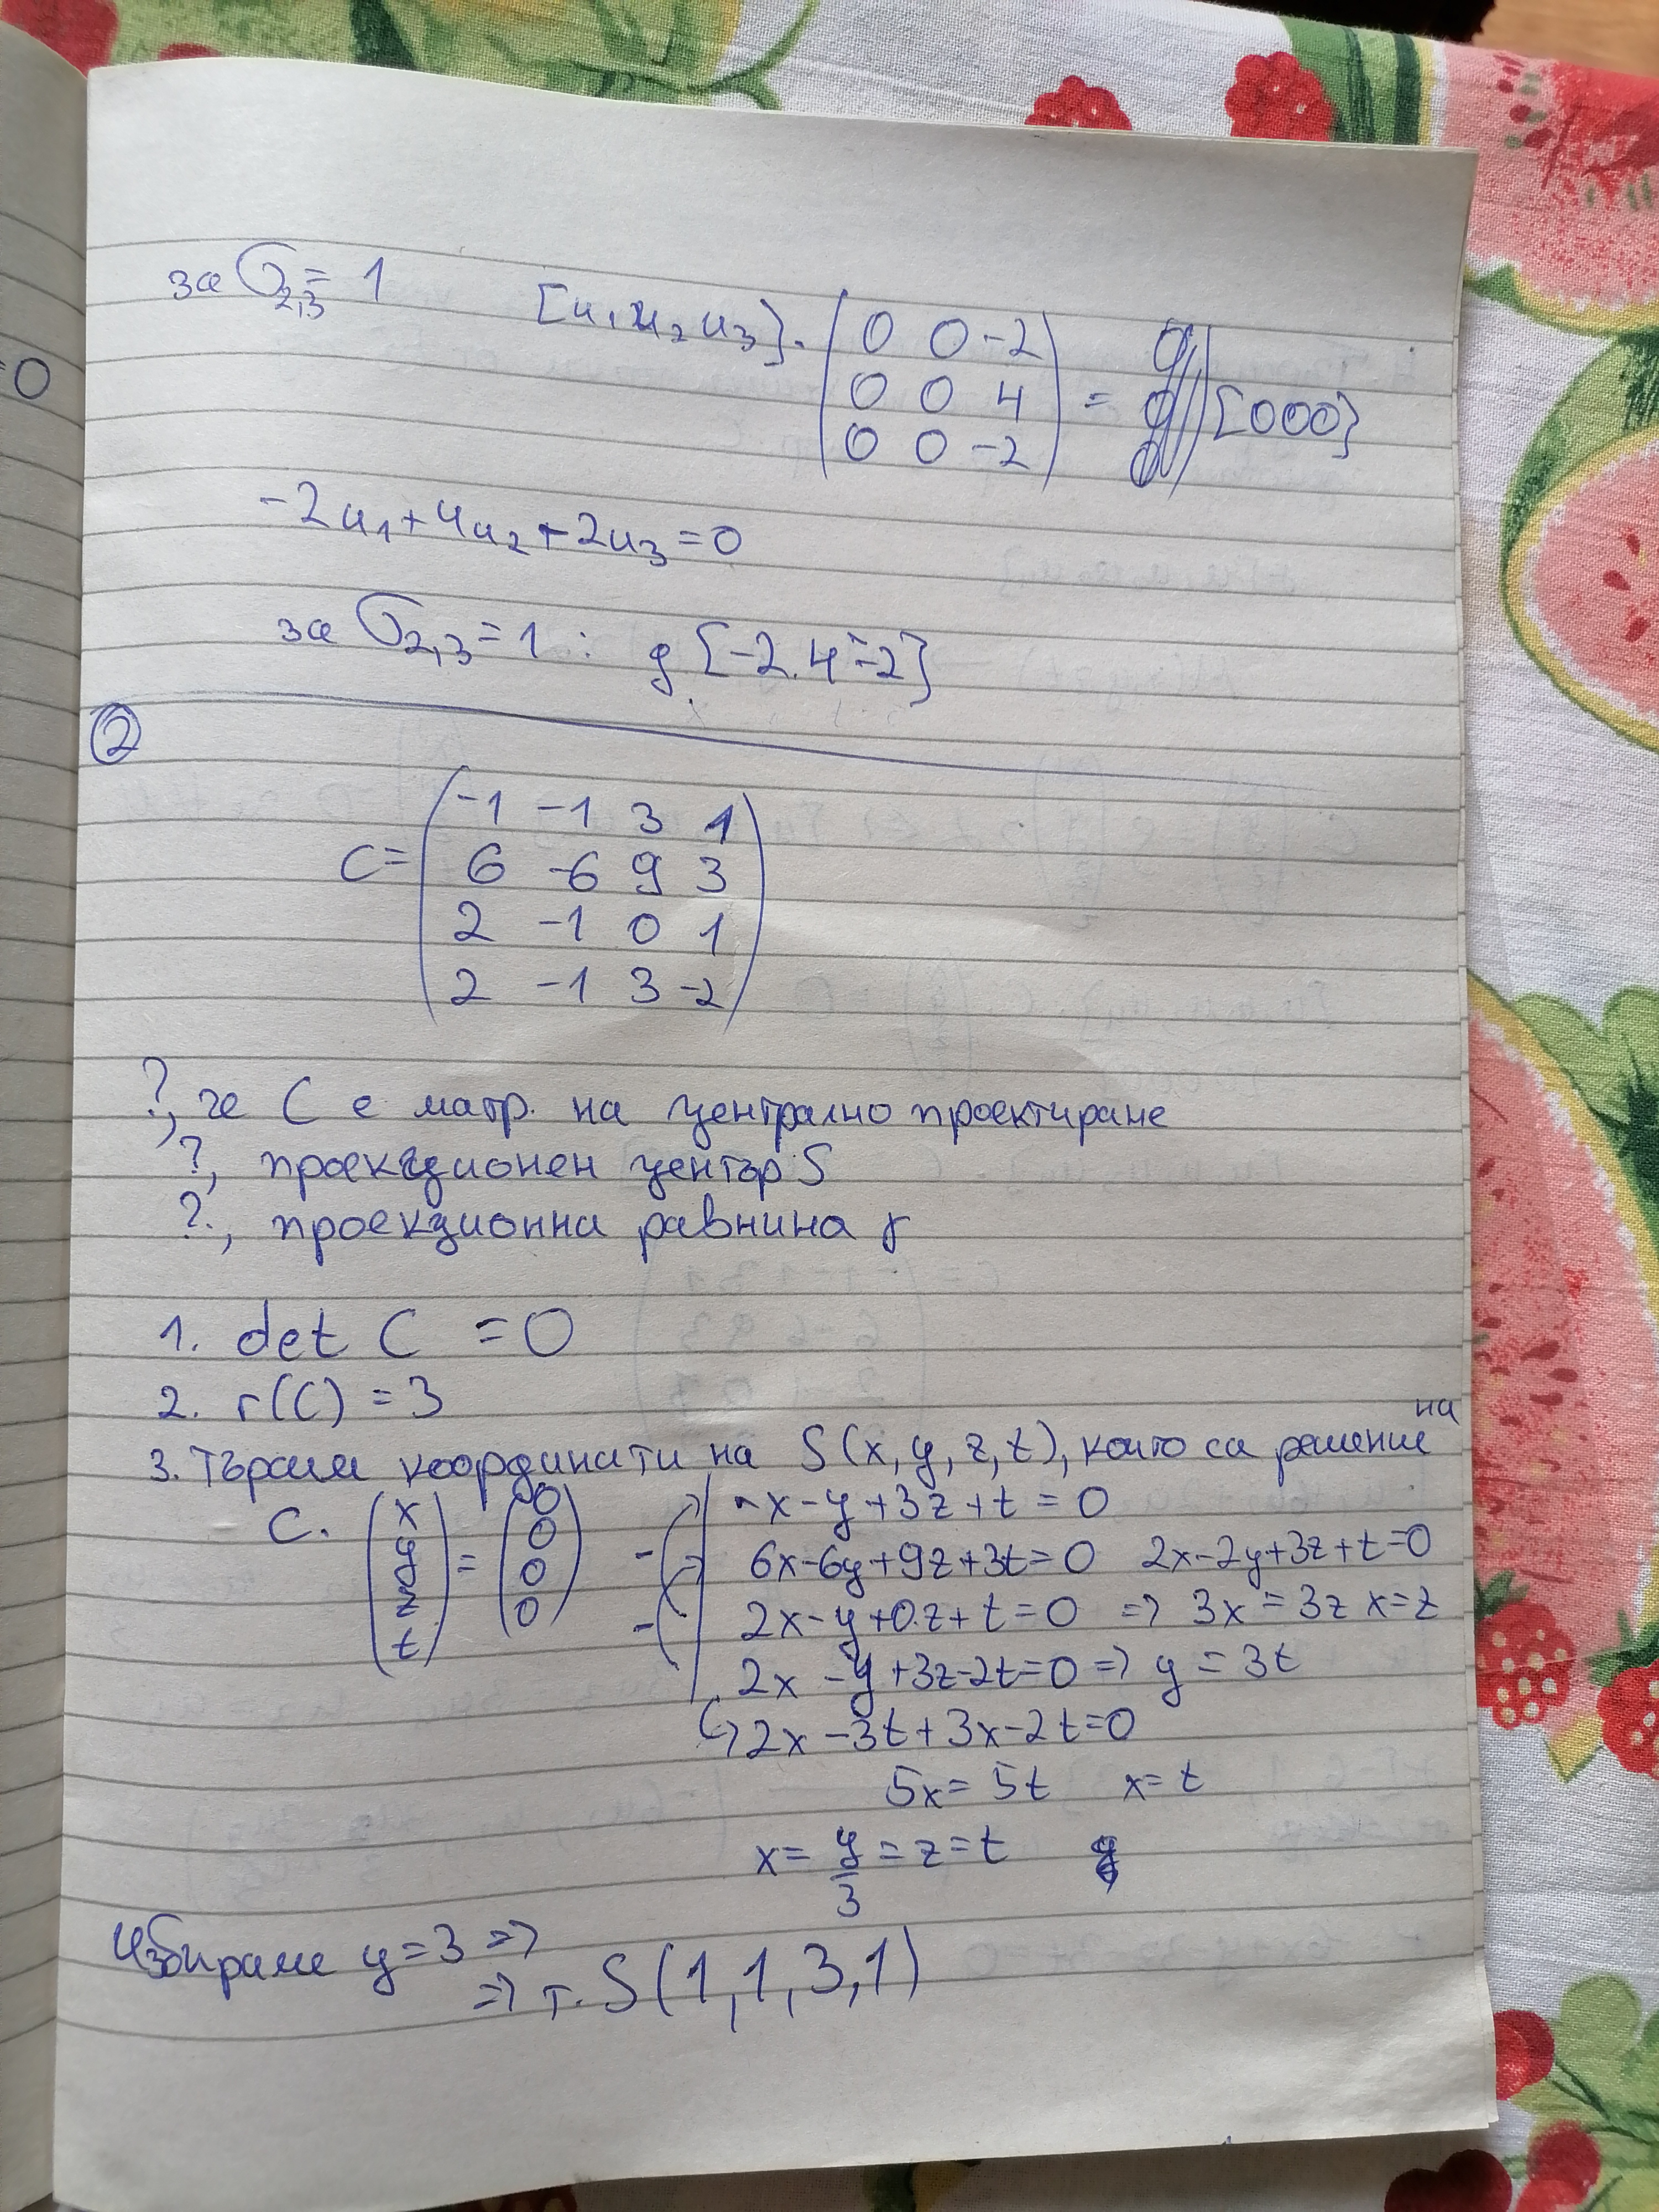 =0
за σ2,3 = 1 [u1 u2 u3].(0 0 -2
0 0 4
0 0 -2) = [000]
-2u1+4u2+-2u3=0
за σ2,3=1 : g[-2.4 -2]
②
C=(-1 -1 3 1
6 -6 9 3
2 -1 0 1
2 -1 3 -2)
?, че C е матр. на централно проектиране
?, проекционен център S
?, проекционна равнина γ
1. det C = 0
2. r(C) = 3
3. Търсим координати на S(x,y,z,t), които са решение на
C. (x y z t) = (0 0 0 0)
-x-y+3z+t=0
6x-6y+9z+3t=0 2x-2y+3z+t=0
2x-y+0.z+t=0 => 3x=3z x=z
2x-y+3z-2t=0 => y=3t
↳ 2x-3t+3x-2t=0
5x=5t x=t
x=y/3=z=t
Избираме y=3 =>
=> т. S(1,1,3,1)